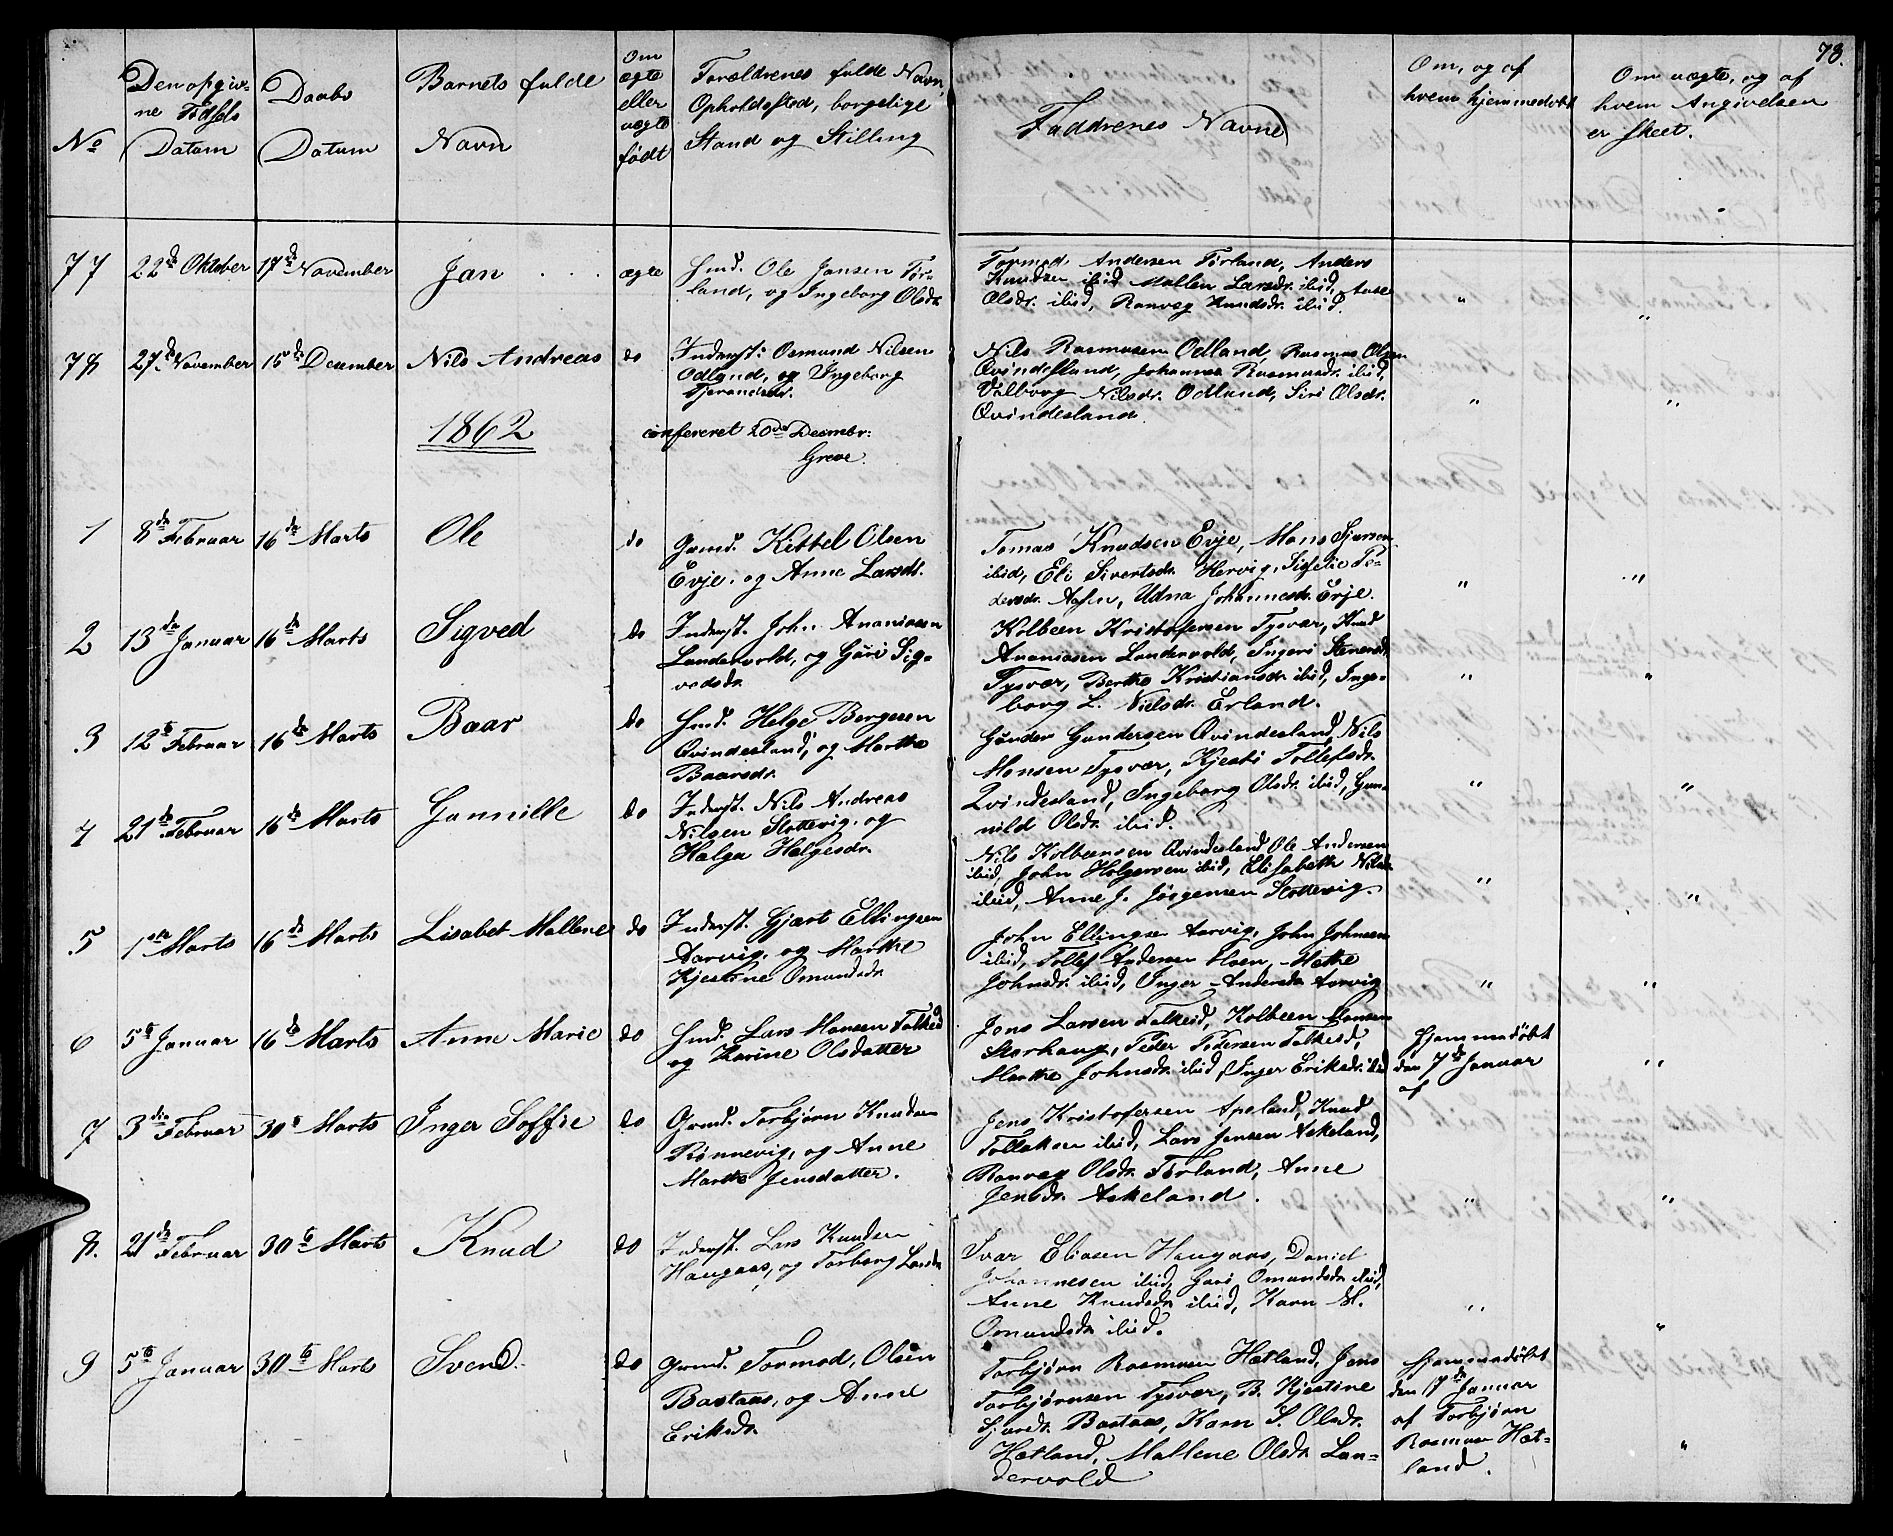 78.
No
Den opgiv-
ne Fødsels
Datum
Daabs
Datum
Barnets fulde
Navn
Om
ægte
eller
uægte
født
Forældrenes fulde Navn,
Opholdssted, borgelige
Stand og Stilling
Faddrenes Navne
Om, og af
hvem hjemmedøbt
Om uægte, og af
hvem Angivelsen
er skeet.
77 22de Oktober 17de November Jan ægte
Gmd. Ole Jansen Før-
land, og Ingeborg Olsdr.
Tormod Andersen Førland, Anders
Knudsen ibid, Mallen Larsdr. ibid, Anne
Olsdr. ibid, Ranveg Knudsdr. ibid.
" "
78 27de November 15de December Nils Andreas do
Inderst: Osmund Nilsen
Odland, og Ingeborg
Gjerandsdr.
Nils Rasmusen Odland, Rasmus Olsen
Qvindesland, Johanna Rasmusdr. ibid,
Valborg Nilsdr. Odland, Siri Olsdr.
Qvindesland
" "
1862
confereret 20de Decembr:
Greve.
1 8da Februar 16da Marts Ole do
Gmd. Kittel Olsen
Evje, og Anne Larsdr.
Tomas Knudsen Evje, Mons
ibid, Eli Sivertsdr. Hervig, Pe-
dersdr. Udna Johannesdr. Evje.
" "
2 13da Januar 16da Marts Sigved do
Inderst. John Ananiasen
Landervold, og Guri Sig-
vedsdr.
Kolbeen Kristofersen Tysvær, Knud
Ananiasen Landervold, Ingeri
Tysvær, Berthe Kristiansdr. ibid, Inge-
borg L. Nielsdr. Erland.
" "
3 12te Februar 16da Marts Baar do
Gmd. Helge Bergesen
Qvindesland, og Marthe
Baarsdr.
Gunder Gundersen Qvindesland, Nils
Monsen Tysvær, Kjesti Tollefsdr.
Qvindesland, Ingeborg Olsdr. ibid, Gun-
nild Olsdr. ibid.
" "
4 21de Februar 16de Marts Gunnille do
Inderst. Nils Andreas
Nilsen Slottevig, og
Helga Helgesdr.
Nils Kolbeensen Qvindesland Ole Andersen
ibid, John Holgersen ibid, Elisabeth Nilsdr.
ibid, Anne J. Jørgensen Slottevig.
" "
5 1ste Marts 16de Marts Lisabet Mallene do
Inderst. Gjært Ellingsen
Aarvig, og Marthe
Kjestine Omundsdr.
John Ellingsen Aarvig, John Johnsen
ibid, Tollef Andersen Hoen, Mette
Johnsdr. ibid, Inger Andersdr. Aarvig
" "
6 5te Januar 16de Marts Anne Marie do
Gmd. Lars Hansen Falkeid
og Karine Olsdatter
Jens Larsen Falkeid, Kolbeen Hansen
Storhaug, Peder Pedersen Falkeid,
Marthe Johnsdr. ibid, Inger Eriksdr. ibid
Hjemmedøbt
den 7de Januar
af
"
7 3die Februar 30te Marts Inger Soffie do
Gmd. Torbjørn Knudsen
Rønnevig, og Anne
Marthe Jensdatter.
Jens Kristofersen Apeland, Knud
Tollaksen ibid, Lars Jensen Askeland,
Ranveg Olsdr. Førland, Anne
Jensdr. Askeland.
" "
8. 21de Februar 30te Marts Knud do
Inderst. Lars Knudsen
Haugaas, og Torborg Larsdr.
Ivar Eliasen Haugaas, Daniel
Johannesen ibid, Guri Omundsdr. ibid,
Anne Knudsdr. ibid, Karn M.
Omundsdr. ibid.
" "
9 5te Januar 30te Marts Svend do
Gmd. Tormod Olsen
Bastaas, og Anne
Eriksdr.
Torbjørn Rasmusen Hetland, Jens
Torbjørnsen Tysvær, B. Kjestine
Sjursdr. Bastaas, Karn S. Olsdr.
Hetland, Mallene Olsdr. Lan-
dervold
Hjemmedøbt
den 17de Januar
af Torbjørn
Rasmusen Het-
land.
"